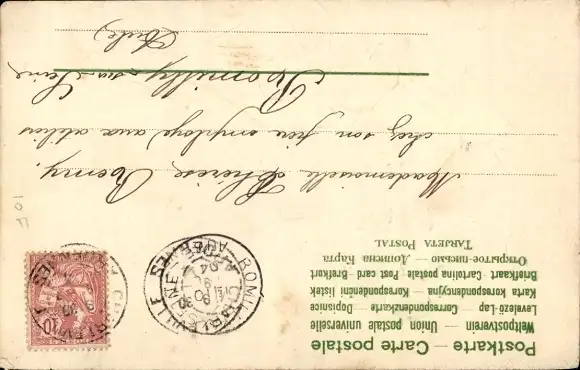 Postkarte — Carte postale
Weltpostverein — Union postale universelle
Levelező-Lap — Correspondenzkarte — Dopisnice
Karta korespondencyjna — Korespondenční listek
Briefkaart — Cartolina postale — Post card — Brefkort
Открытое письмо — Дописна Карта
TARJETA POSTAL
Mademoiselle Thérèse Remy,
chez son père employé aux ateliers
Romilly-sur-Seine
(Aube)
10
CHARLEVILLE
ARDENNES
ROMILLY
AUBE
10